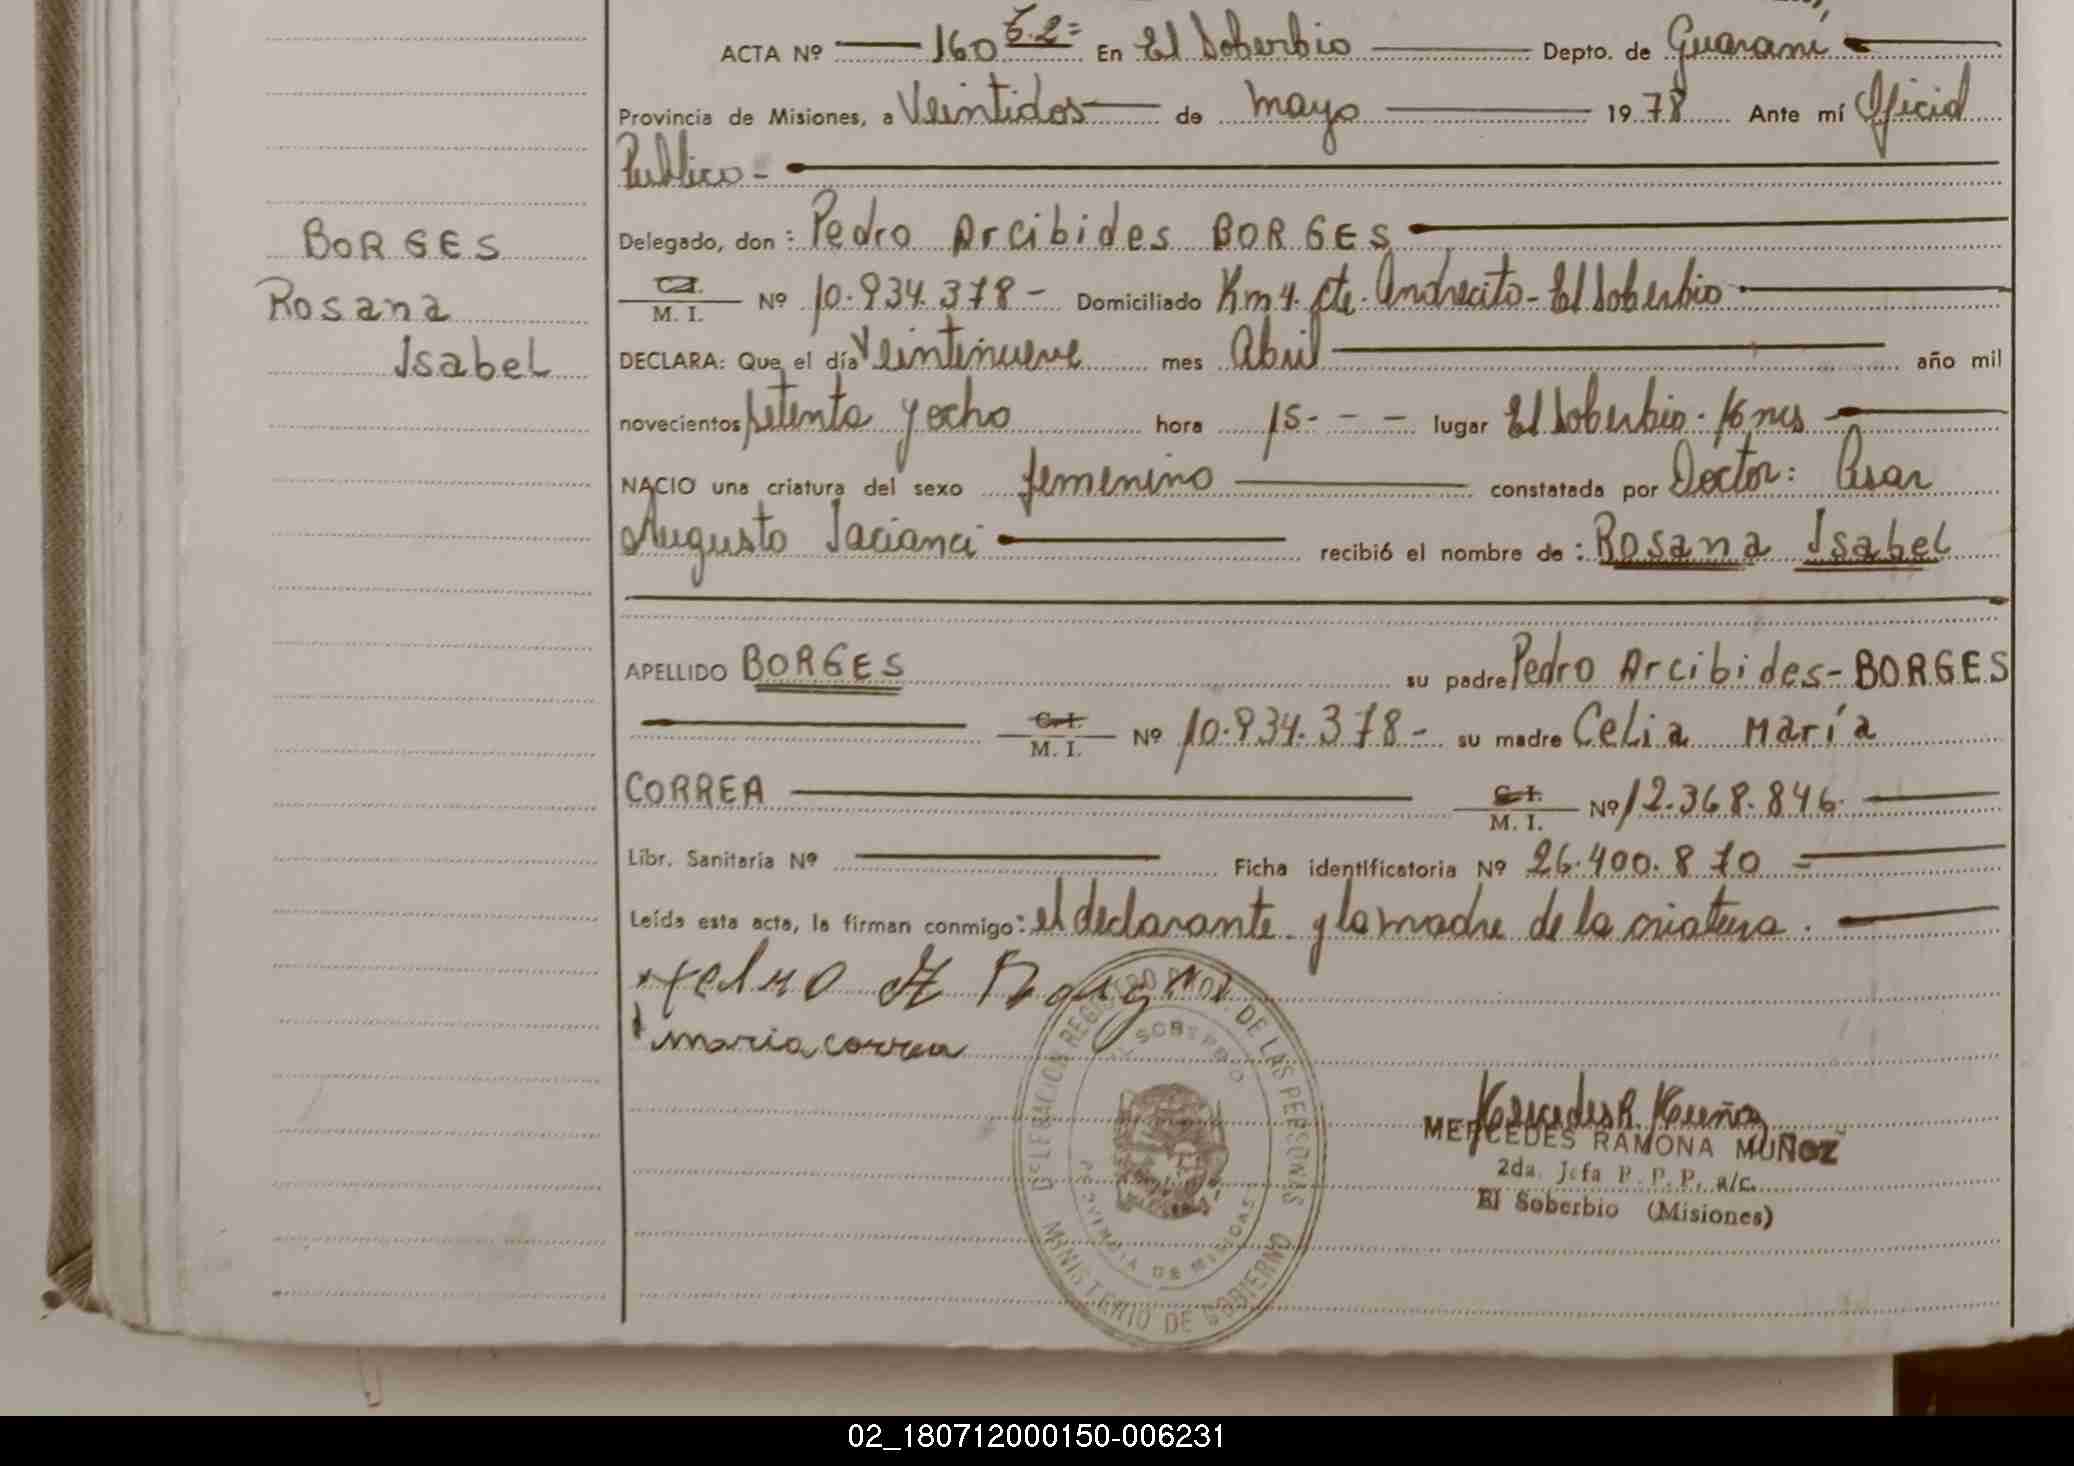 ACTA Nº 160 En El Soberbio Depto. de Guaraní
Provincia de Misiones, a Veintidos de mayo 1978 Ante mí Oficial
Publico -
BORGES
Rosana
Isabel
Delegado, don: Pedro Arcibides BORGES
M. I. Nº 10.934.378- Domiciliado Km 4. Cte. Andresito - El Soberbio
DECLARA: Que el día Veintinueve mes Abril año mil
novecientos setenta y ocho hora 15- - - lugar El Soberbio.
NACIO una criatura del sexo femenino constatada por Doctor: Cesar
Augusto recibió el nombre de: Rosana Isabel
APELLIDO BORGES su padre Pedro Arcibides - BORGES
C. I.
M. I. Nº 10.934.378- su madre Celia María
CORREA C. I.
M. I. Nº 12.368.846
Libr. Sanitaria Nº Ficha identificatoria Nº 26.400.870 =
Leída esta acta, la firman conmigo: el declarante y la madre de la criatura.
maria correa
DELEGACION REGISTRO PROV. DE LAS PERSONAS
EL SOBERBIO
PROVINCIA DE MISIONES
MINISTERIO DE GOBIERNO
Mercedes R. Muñoz
MERCEDES RAMONA MUÑOZ
2da. Jefa R. P. P. a/c.
El Soberbio (Misiones)
02_180712000150-006231